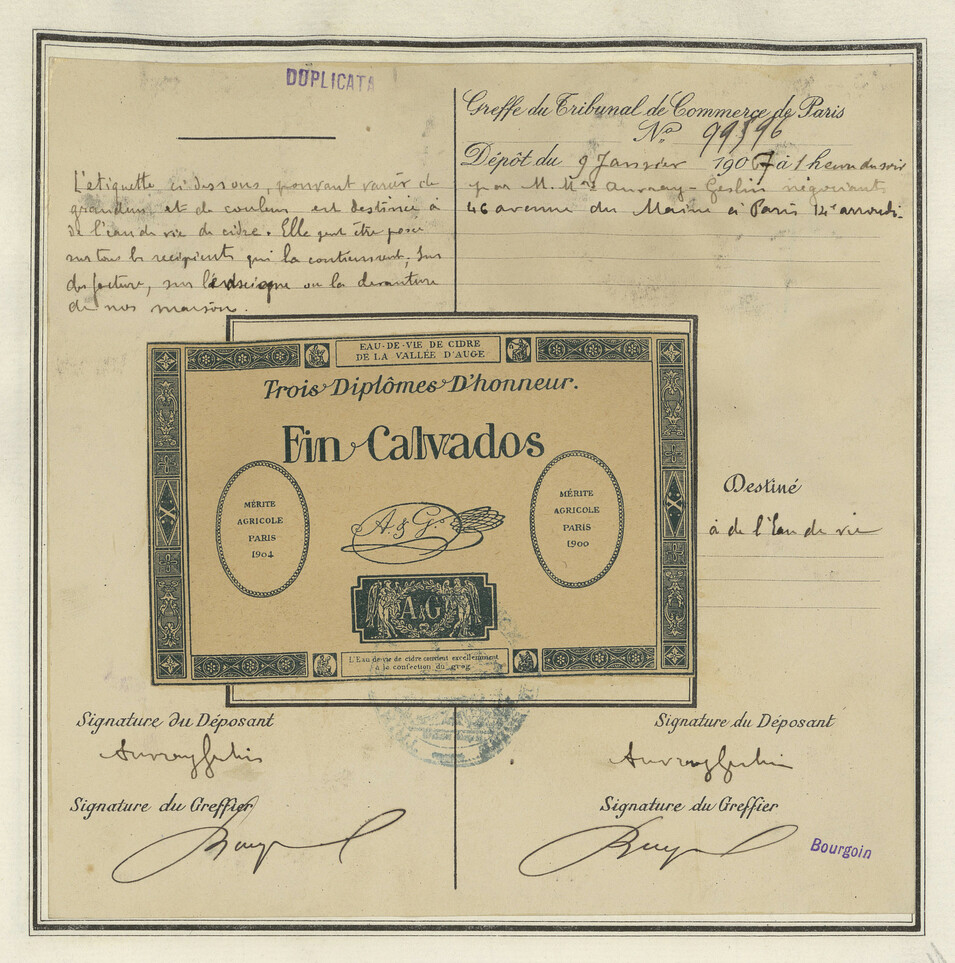 DUPLICATA
Greffe du Tribunal de Commerce de Paris
No 99396
Dépôt du 9 Janvier 1907 à 1 heure du soir
par M. Mrs Auvray-Geslin négociants
46 avenue du Maine à Paris 14e arrondi-
L'étiquette ci dessous, pouvant varier de
grandeur et de couleur est destinée à
de l'eau de vie de cidre. Elle peut être posée
sur tous les recipients qui la contiennent, sur
des facture, sur l'enseigne ou la devanture
de nos maison.
EAU-DE-VIE DE CIDRE
DE LA VALLÉE D'AUGE
Trois Diplômes D'honneur.
Fin Calvados
MÉRITE
AGRICOLE
PARIS
1904
A & G.
MÉRITE
AGRICOLE
PARIS
1900
A & G
L'Eau de vie de cidre convient excellemment
à la confection du grog
Destiné
à de l'Eau de vie
Signature du Déposant
Auvray Geslin
Signature du Greffier
Signature du Déposant
Auvray Geslin
Signature du Greffier
Bourgoin